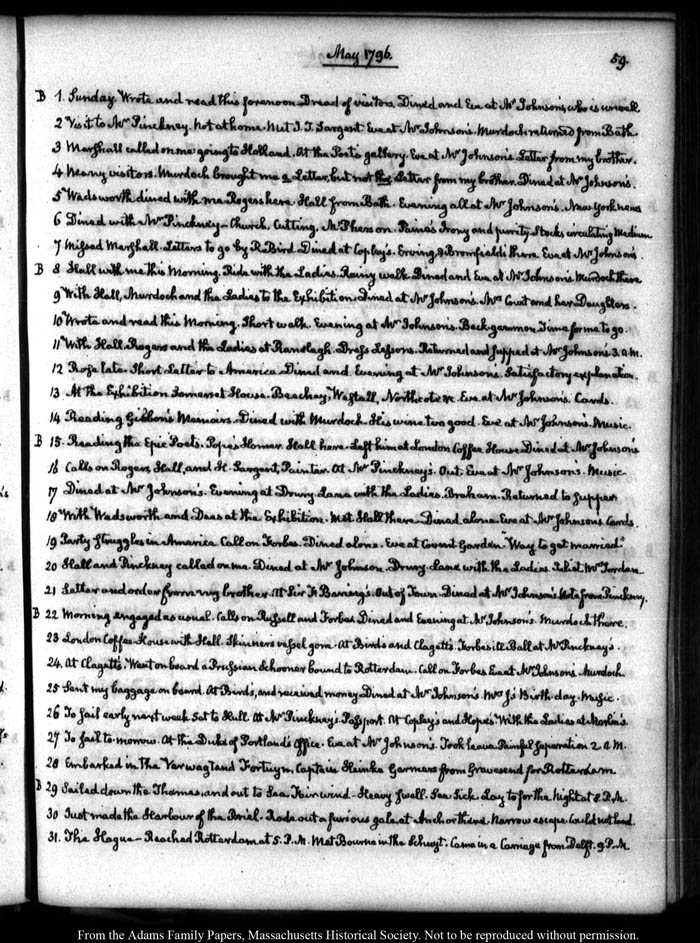 May 1796.
59.
B 1. Sunday. Wrote and read this forenoon. Dread of visitors. Dined and Eve at Mr Johnson's, who is unwell
2 Visit to Mr Pinckney. not at home. Met I. T. Sargent. Eve at Mr Johnson's. Murdoch returned from Bath.
3 Marshall called on me going to Holland. At the Poet's gallery. Eve at Mr Johnson's. Letter from my brother.
4. Many visitors. Murdoch brought me a Letter, but not the Letter from my brother. Dined at Mr Johnson's.
5 Wadsworth dined with me. Rogers here. Hall from Bath. Evening all at Mr Johnson's. New York news
6 Dined with Mr Pinckney. Church, Cutting, McPherson. Paine's Irony and purity. Stocks circulating Medium
7 Missed Marshall. Letters to go by R. Bird. Dined at Copley's. Erving, & Bromfields there. Eve at Mr Johnson's.
B 8 Hall with me this Morning. Ride with the Ladies. Rainy walk. Dined and Eve at Mr Johnson's. Murdoch there
9 With Hall, Murdoch and the Ladies to the Exhibition. Dined at Mr Johnson's. Mrs Court and her Daughters.
10 Wrote and read this Morning. Short walk. Evening at Mr Johnson's. Backgammon. Time for me to go.
11 With Hall, Rogers and the Ladies at Ranelagh. Dress Lessons. Returned and supped at Mr Johnson's. 3. A.M.
12 Rose late. Short Letter to America. Dined and Evening at Mr Johnson's. Satisfactory explanation.
13 At the Exhibition Somerset House. Beechey, Westall, Northcote &c. Eve at Mr Johnson's. Cards.
14 Reading Gibbon's Memoirs. Dined with Murdoch. His wine too good. Eve at Mr Johnson's. Music.
B 15. Reading the Epic Poets. Pope's Homer. Hall here. Left him at London Coffee House. Dined at Mr Johnson's
16 Calls on Rogers, Hall, and H. Sargent, Painter. At Mr Pinckney's. Out. Eve at Mr Johnson's. Music
17 Dined at Mr Johnson's. Evening at Drury Lane with the Ladies. Braham. Returned to supper
18 With Wadsworth and Deas at the Exhibition. Met Hall there. Dined alone. Eve at Mr Johnson's. Cards.
19 Party struggles in America. Call on Forbes. Dined alone. Eve at Covent Garden "Way to get married"
20 Hall and Pinckney called on me. Dined at Mr Johnson. Drury-lane with the Ladies. Mrs Jordan
21 Letter and order from my brother. At Sir F. Baring's. Out of Town. Dined at Mr Johnson's. Note from Pinckney.
B 22 Morning engaged as usual. Calls on Russell and Forbes. Dined and Evening at Mr Johnson's. Murdoch there.
23 London Coffee-House with Hall. Skinner's vessel gone. At Bird's and Clagett's. Forbes ill. Ball at Mr Pinckney's.
24. At Clagett's. Went on board a Prussian Schooner bound to Rotterdam. Call on Forbes. Eve at Mr Johnson's. Murdoch
25 Sent my baggage on board. At Birds, and received money. Dined at Mr Johnson's. Mrs J's Birth-day. Music.
26 To sail early next week. Sat to Hull. At Mr Pinckney's. Passport. At Copley's and Hope's. With the Ladies at
27 To sail to-morrow. At the Duke of Portland's Office. Eve at Mr Johnson's. Took leave. Painful separation 2 A.M.
28 Embarked in the Captain from Gravesend for Rotterdam.
B 29 Sailed down the Thames, and out to Sea. Fair wind—Heavy swell. Sea Sick. Lay to for the Night at 8. P.M.
30 Just made the Harbour of the Briel. Rode out a furious gale, at Anchor there. Narrow escape. Could not land.
31. The Hague—Reached Rotterdam at 5. P.M. Met Bourne in the Schuyt. Came in a Carriage from Delft. 9 P.M.
From the Adams Family Papers, Massachusetts Historical Society. Not to be reproduced without permission.